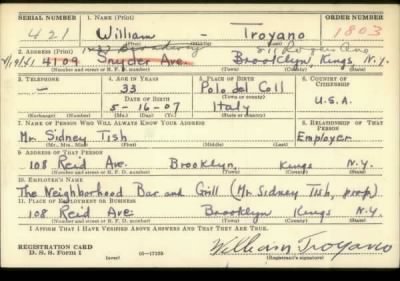 SERIAL NUMBER 1. NAME (Print) ORDER NUMBER
421 William - Troyano 1803
2. ADDRESS (Print)
4109 Snyder Ave. Brooklyn, Kings, N.Y.
(Number and street or R. F. D. number) (Town) (County) (State)
3. TELEPHONE 4. AGE IN YEARS 5. PLACE OF BIRTH 6. COUNTRY OF CITIZENSHIP
- 33 Polo del Coll
DATE OF BIRTH (Town or county)
5-16-07 Italy U.S.A.
(Mo.) (Day) (Yr.) (State or country)
7. NAME OF PERSON WHO WILL ALWAYS KNOW YOUR ADDRESS 8. RELATIONSHIP OF THAT PERSON
Mr. Sidney Tish Employer
(Mr., Mrs., Miss) (First) (Middle) (Last)
9. ADDRESS OF THAT PERSON
108 Reid Ave. Brooklyn, Kings N.Y.
(Number and street or R. F. D. number) (Town) (County) (State)
10. EMPLOYER'S NAME
The Neighborhood Bar and Grill (Mr. Sidney Tish, prop.)
11. PLACE OF EMPLOYMENT OR BUSINESS
108 Reid Ave Brooklyn Kings N.Y.
(Number and street or R. F. D. number) (Town) (County) (State)
I AFFIRM THAT I HAVE VERIFIED ABOVE ANSWERS AND THAT THEY ARE TRUE.
REGISTRATION CARD William Troyano
D. S. S. Form 1 (over) (Registrant's signature)